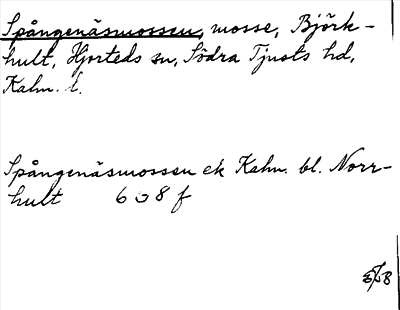 Spångenäsmossen, mosse, Björk-
hult, Hjorteds sn, Södra Tjusts hd,
Kalm. l.
Spångenäsmossen ek Kalm. bl. Norr-
hult 6 o 8 f